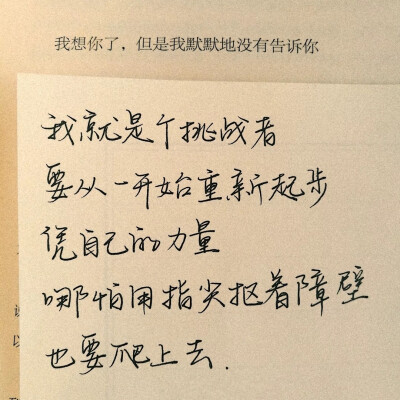 我想你了，但是我默默地没有告诉你
我就是个挑战者
要从一开始重新起步
凭自己的力量
哪怕用指尖抠着障壁
也要爬上去.
以